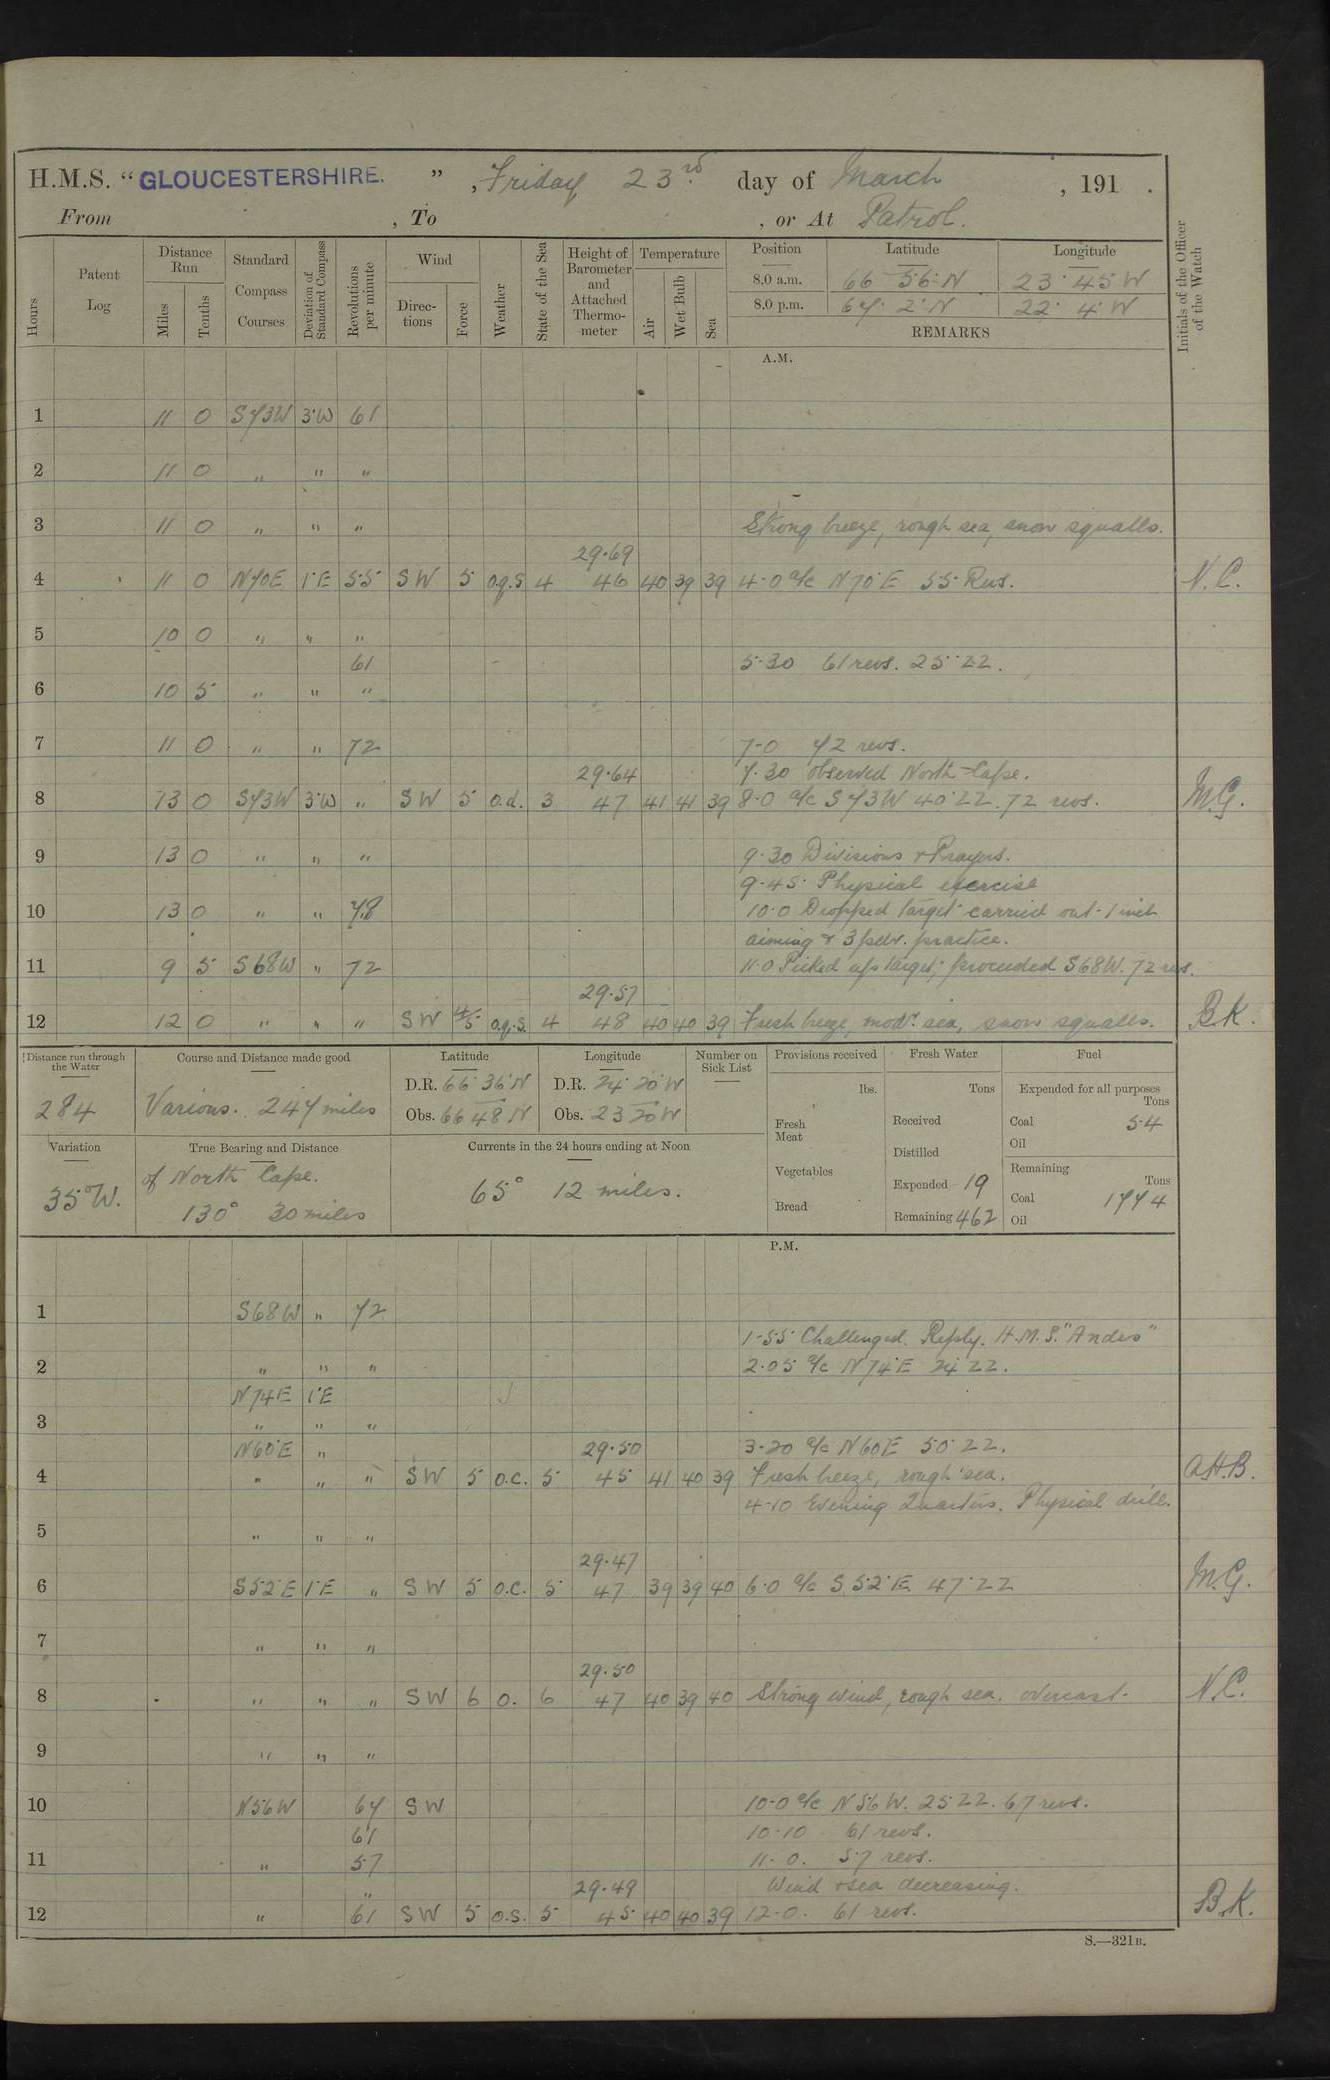 H.M.S. “GLOUCESTERSHIRE.” , Friday 23rd day of March , 191 .
From , To , or At Patrol.
Hours Patent Log Distance Run Miles Tenths Standard Compass Courses Deviation of Standard Compass Revolutions per minute Wind Directions Force Weather State of the Sea Height of Barometer and Attached Thermometer Temperature Air Wet Bulb Sea Position Latitude Longitude Initials of the Officer of the Watch
8.0 a.m. 66 56 N 23° 45 W
8.0 p.m. 67 2 N 22 4 W
REMARKS
A.M.
1 11 0 S73W 3°W 61
2 11 0 " " "
3 11 0 " " " Strong breeze, rough sea, snow squalls.
29.69
4 11 0 N70E 1°E 55 SW 5 o.q.s 4 46 40 39 39 4-0 a/c N70°E 55 Revs. N.C.
5 10 0 " " "
61 5-30 61 revs. 25 ZZ.
6 10 5 " " "
7 11 0 " " 72 7-0 72 revs.
29.64 7.30 observed North Cape.
8 13 0 S73W 3°W " SW 5 o.d. 3 47 41 41 39 8-0 a/c S73W 40 ZZ. 72 revs. M.G.
9 13 0 " " " 9.30 Divisions & Prayers.
9-45 Physical exercise
10 13 0 " " 78 10-0 Dropped target carried out 1 inch
aiming & 3 pdr. practice.
11 9 5 S68W " 72 11.0 Picked up target; proceeded S68W. 72 revs.
29.57
12 12 0 " " " SW 4/5 o.q.s. 4 48 40 40 39 Fresh breeze, modr. sea, snow squalls. B.K.
Distance run through the Water 284
Course and Distance made good Various. 247 miles
Latitude D.R. 66° 36 N Obs. 66 48 N
Longitude D.R. 24° 20 W Obs. 23 20 W
Number on Sick List
Provisions received lbs. Fresh Meat Vegetables Bread
Fresh Water Tons Received Distilled Expended 19 Remaining 462
Fuel Expended for all purposes Tons Coal 54 Oil Remaining Tons Coal 1774 Oil
Variation 35°W.
True Bearing and Distance of North Cape. 130° 30 miles
Currents in the 24 hours ending at Noon 65° 12 miles.
P.M.
1 S68W " 72
1-55 Challenged. Reply. H.M.S. "Andes"
2 " " " 2.05 a/c N74°E 24 ZZ.
N74E 1°E
3 " " "
N60°E " 29.50 3-20 a/c N60E 50 ZZ.
4 " " " SW 5 o.c. 5 45 41 40 39 Fresh breeze, rough sea. A.H.B.
4-10 Evening Quarters. Physical drill.
5 " " "
29.47
6 S52°E 1°E " SW 5 o.c. 5 47 39 39 40 6.0 a/c S.52°E. 47 ZZ M.G.
7 " " "
29.50
8 " " " SW 6 o. 6 47 40 39 40 Strong wind, rough sea. overcast. N.C.
9 " " "
10 N56W 67 SW 10-0 a/c N56W. 25 ZZ. 67 revs.
61 10-10 61 revs.
11 " 57 11-0. 57 revs.
" 29.49 Wind & sea decreasing.
12 " 61 SW 5 o.s. 5 45 40 40 39 12-0. 61 revs. B.K.
S.—321B.